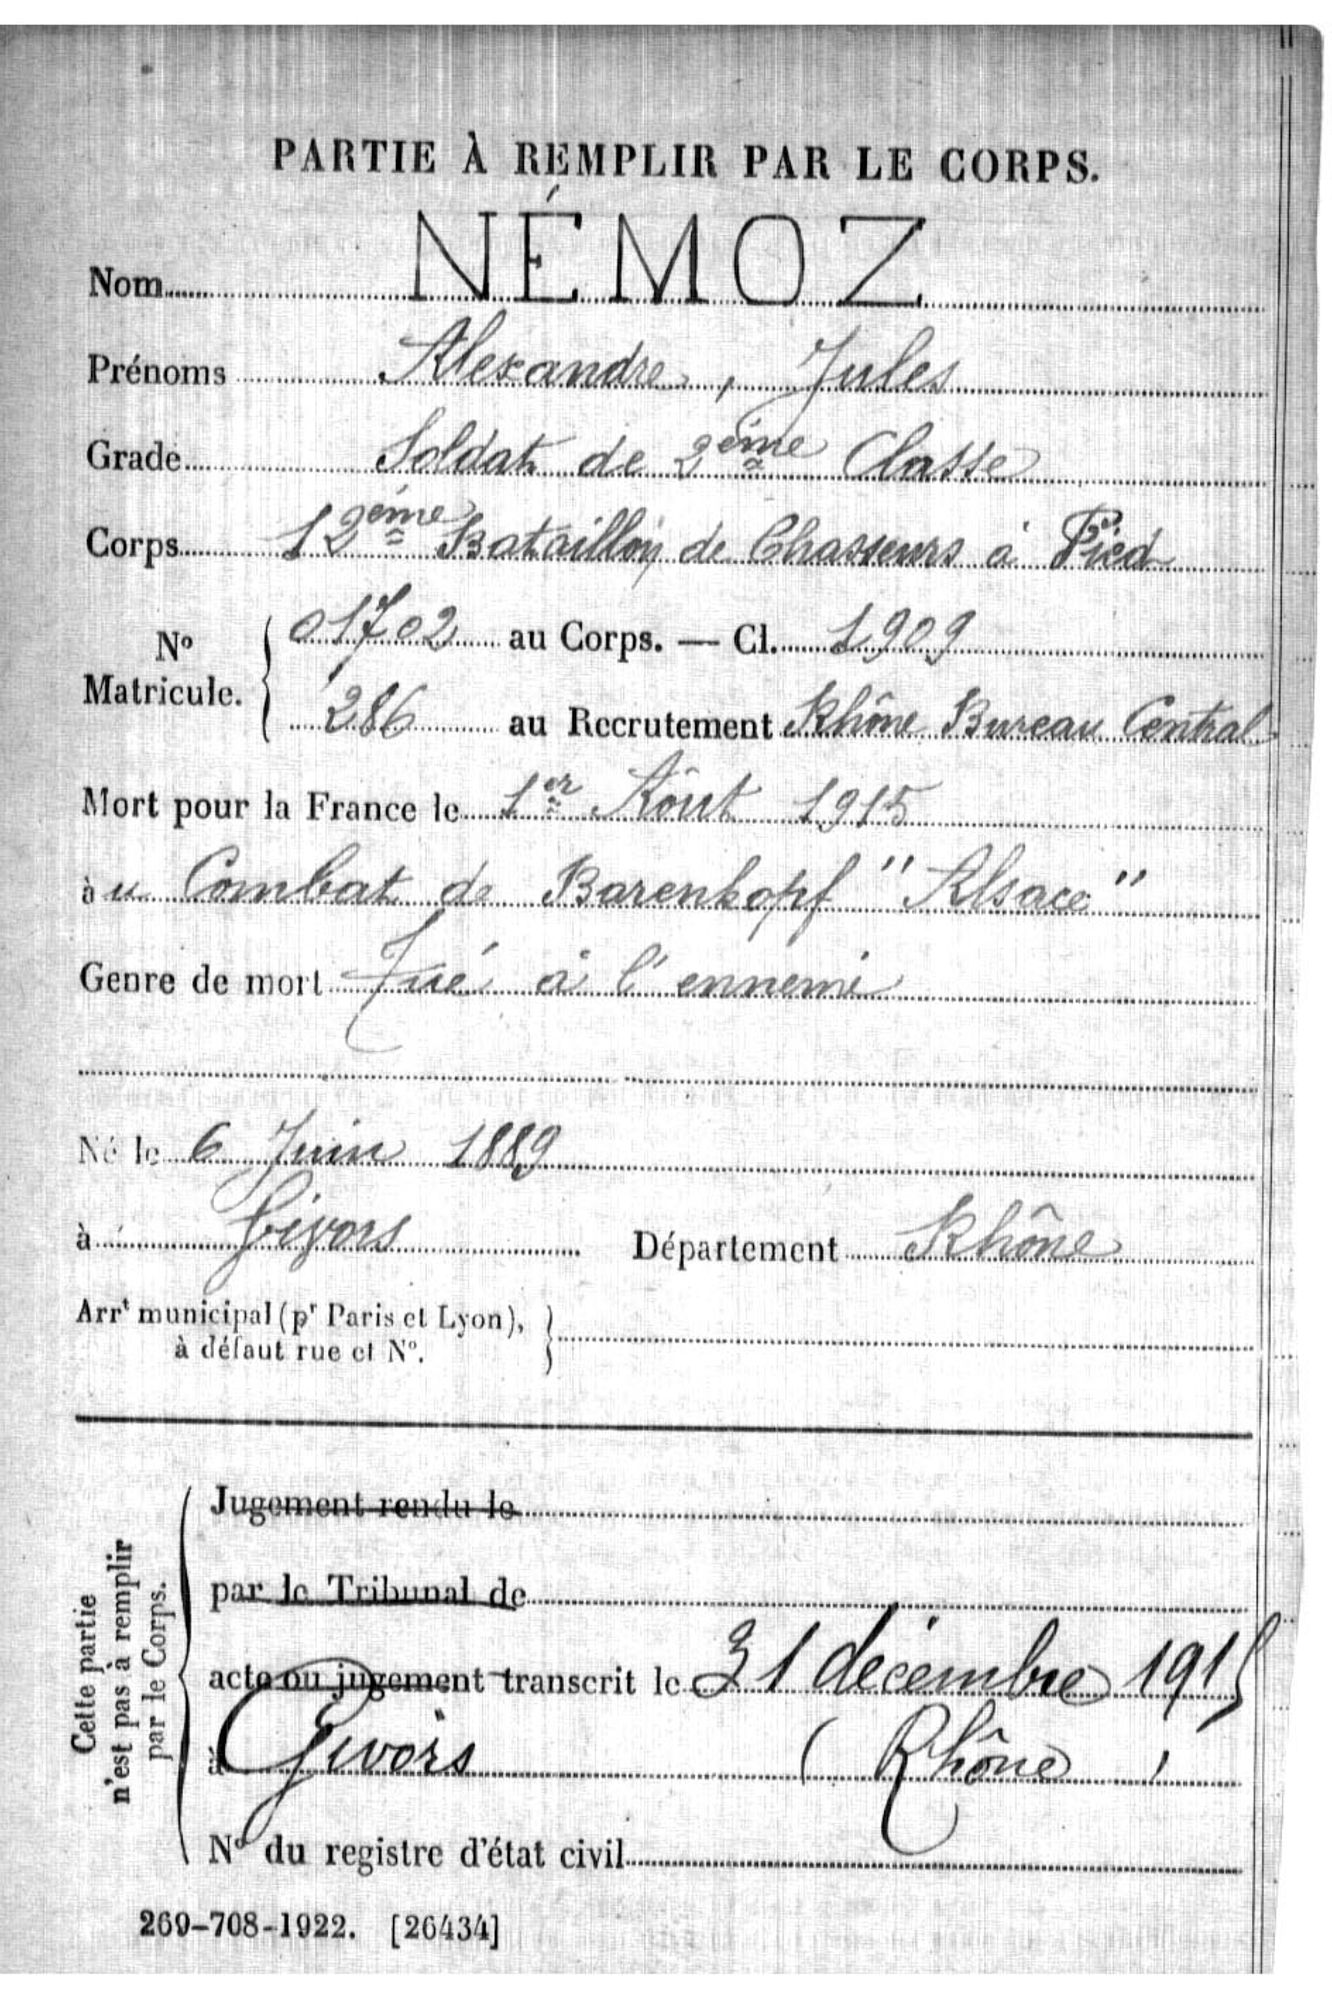 PARTIE À REMPLIR PAR LE CORPS.
Nom NÉMOZ
Prénoms Alexandre, Jules
Grade Soldat de 2ème Classe
Corps 12ème Bataillon de Chasseurs à Pied
No Matricule. { 01702 au Corps. — Cl. 1909
286 au Recrutement Rhône Bureau Central
Mort pour la France le 1er Aôut 1915
àu Combat de Barenkopf "Alsace"
Genre de mort Tué à l'ennemi
Né le 6 Juin 1889
à Givors Département Rhône
Arrt municipal (pr Paris et Lyon),
à défaut rue et No. }
Cette partie
n'est pas à remplir
par le Corps.
Jugement rendu le
par le Tribunal de
acte ou jugement transcrit le 31 décembre 1915
à Givors (Rhône)
No du registre d'état civil
269-708-1922. [26434]